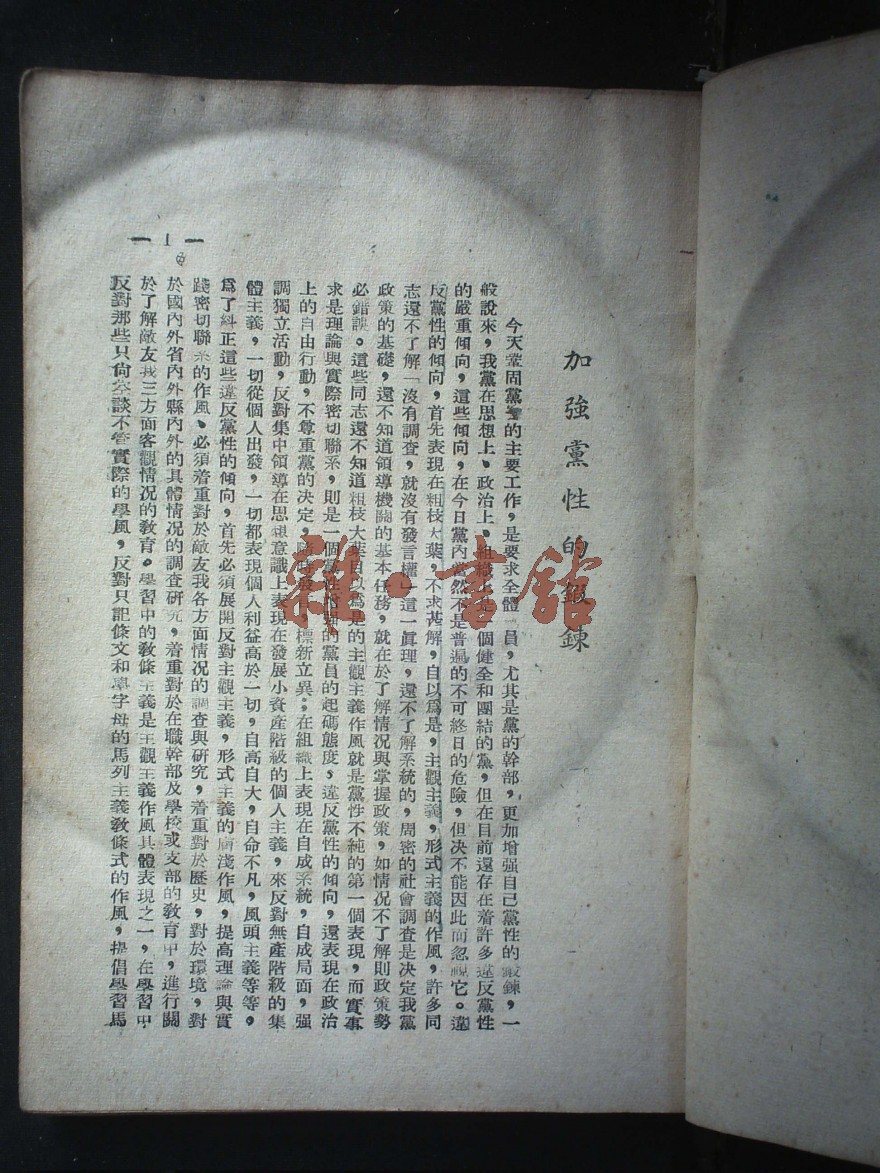 加強黨性的鍛鍊
今天鞏固黨的主要工作，是要求全體員，尤其是黨的幹部，更加增强自己黨性的鍛鍊，一
般說來，我黨在思想上、政治上、組織上是個健全和團結的黨，但在目前還存在着許多違反黨性
的嚴重傾向，這些傾向，在今日黨內當然不是普遍的不可終日的危險，但决不能因此而忽視它。違
反黨性的傾向，首先表現在粗枝大葉，不求甚解，自以爲是，主觀主義，形式主義的作風，許多同
志還不了解「沒有調查，就沒有發言權」這一眞理，還不了解系統的，周密的社會調查是决定我黨
政策的基礎，還不知道領導機關的基本任務，就在於了解情况與掌握政策，如情况不了解則政策勢
必錯誤。這些同志還不知道粗枝大葉自以爲是的主觀主義作風就是黨性不純的第一個表現，而實事
求是理論與實際密切聯系，則是一個黨性的黨員的起碼態度，違反黨性的傾向，還表現在政治
上的自由行動，不尊重黨的决定，隨時標新立異；在組織上表現在自成系統，自成局面，强
調獨立活動，反對集中領導在思想意識上表現在發展小資產階級的個人主義，來反對無產階級的集
體主義，一切從個人出發，一切都表現個人利益高於一切，自高自大，自命不凡，風頭主義等等，
爲了糾正這些違反黨性的傾向，首先必須展開反對主觀主義，形式主義的膚淺作風，提高理論與實
踐密切聯系的作風、必須着重對於敵友我各方面情况的調查與研究，着重對於歷史，對於環境，對
於國內外省內外縣內外的具體情况的調查研究，着重對於在職幹部及學校或支部的敎育中，進行關
於了解敵友我三方面客觀情况的敎育。學習中的敎條主義是主觀主義作風具體表現之一，在學習中
反對那些只尙空談不管實際的學風，反對只記條文和摩字母的馬列主義敎條式的作風，提倡學習馬
— 1 —
雜·書館